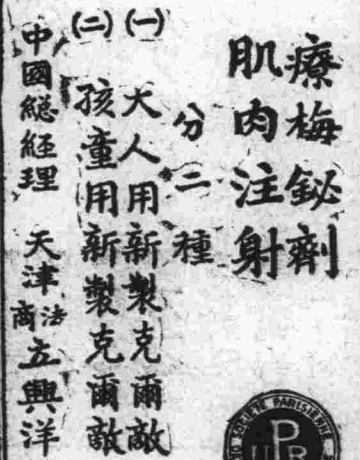 療梅鉍劑
肌肉注射
分二種
(一)大人用新製克爾敵
(二)孩童用新製克爾敵
中國總經理 天津法商立興洋
SOCIÉTÉ PARISIENNE